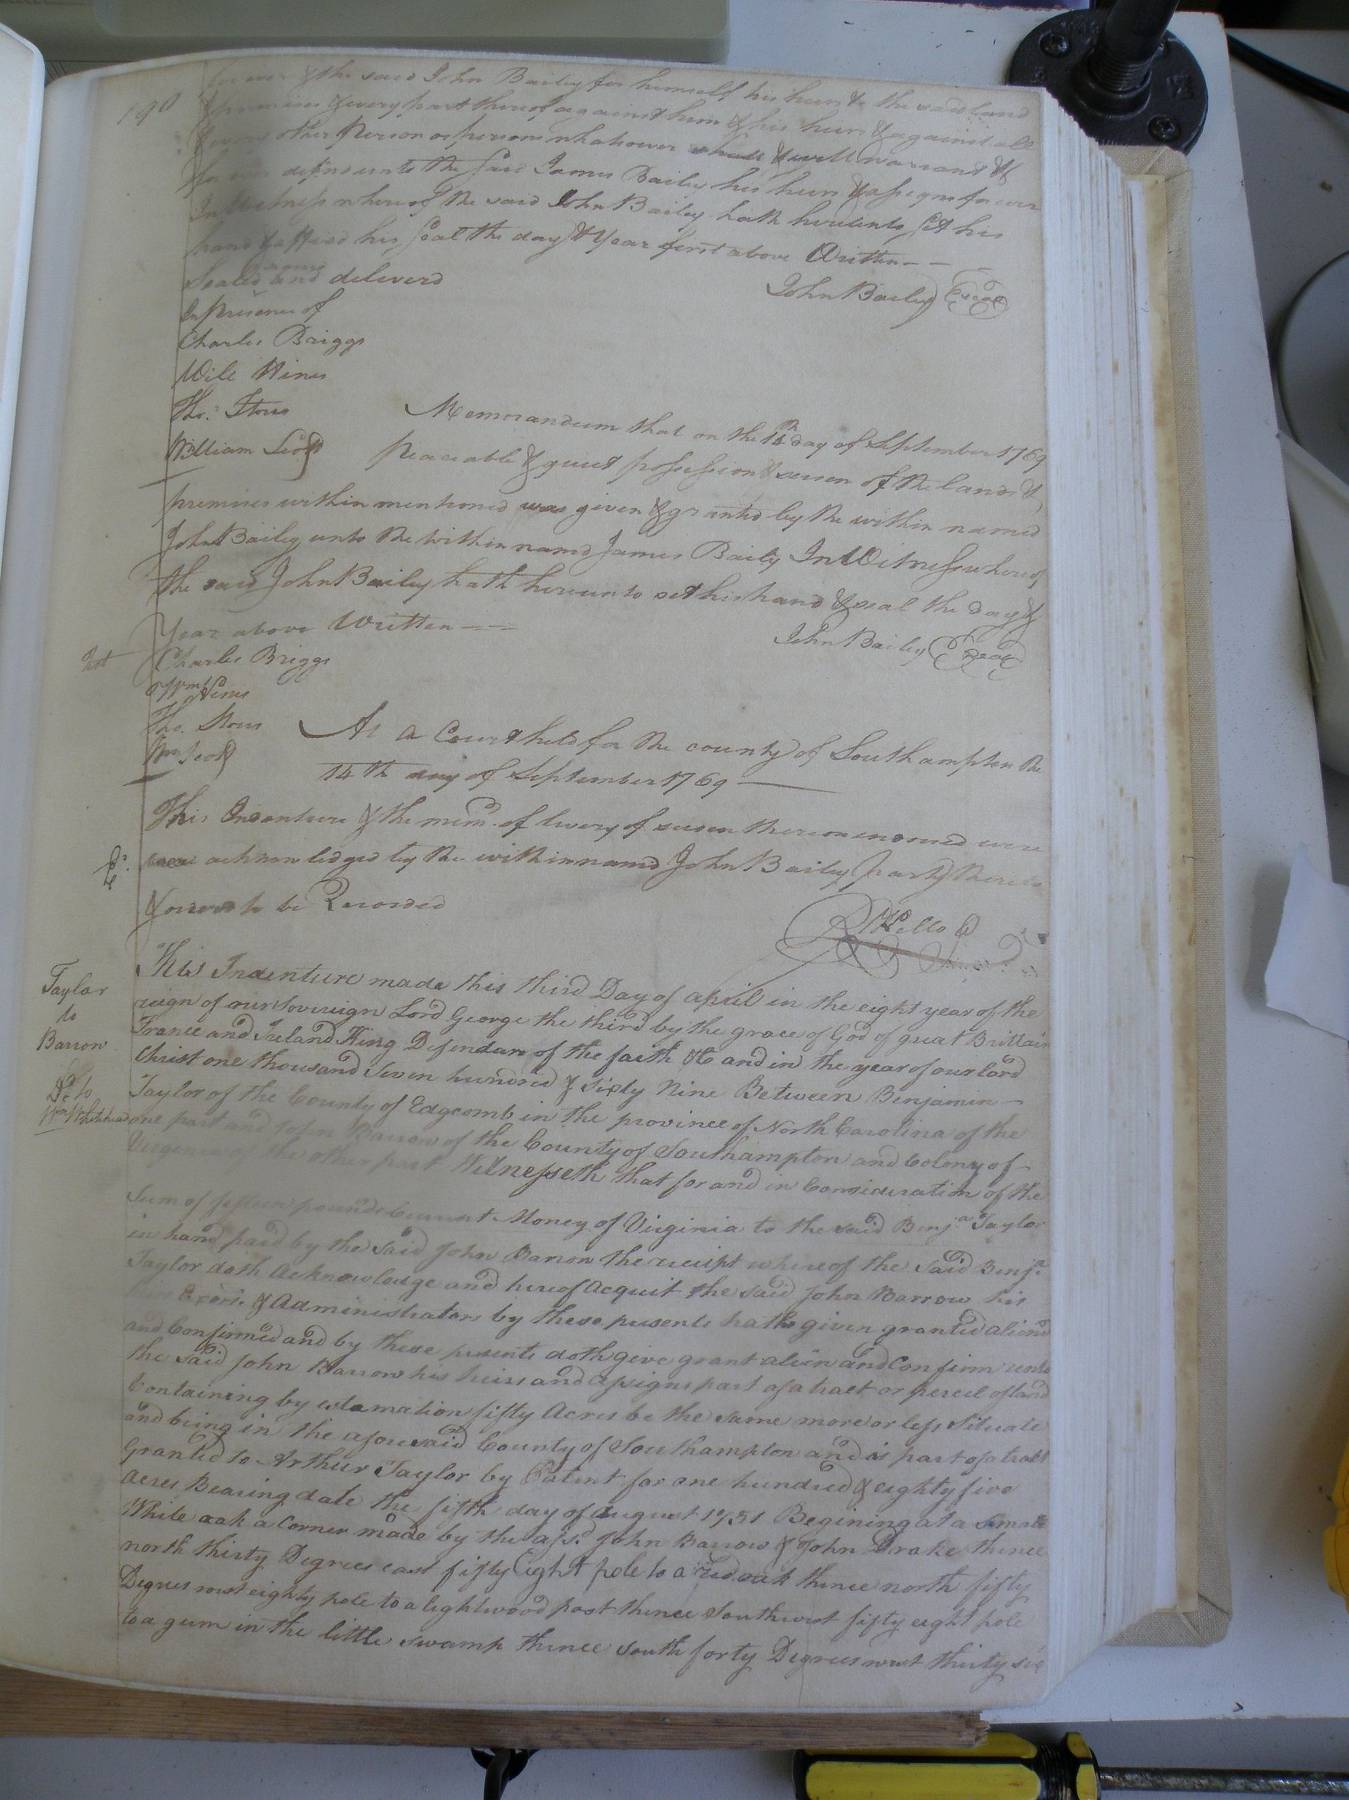 190
for ever & the said John Bailey for himself his heirs & the said land
& premises & every part thereof against him & his heirs & against all
& every other Person or persons whatsoever shall & will warrant &
for ever defend unto the said James Bailey his heirs & assigns for ever
In Witness whereof the said John Bailey hath hereunto set his
hand & affixed his seal the day & Year first above Written
Sealed and deliverd
John Bailey Seal
In Presence of
Charles Briggs
Will Hines
Tho.
William
Memorandum that on the 14th day of September 1769
Peaceable & quiet possession & seisen of the lands &
premises within mentioned was given & granted by the within named
John Bailey unto the within named James Baily In Witness whereof
the said John Bailey hath hereunto set his hand & seal the day &
Year above Written
John Bailey Seal
Charles Briggs
Wm Hines
Tho.
Wm
At a Court held for the county of Southampton the
14th day of September 1769
This Indenture & the mem.o of livery of seisen thereon endorsed were
acknowledged by the within named John Bailey party thereto
& ordered to be Recorded
Taylor
to
Barrow
This Indenture made this third Day of april in the eight year of the
reign of our Sovereign Lord George the third by the grace of God of great Brittain
France and Ireland King Defendar of the faith &c and in the year of our lord
Christ one thousand Seven hundred & Sixty Nine Between Benjamin
Taylor of the County of Edgcomb in the province of North Carolina of the
one part and John Barrow of the County of Southampton and Colony of
Virginia of the other part Witnesseth that for and in Consideration of the
Sum of fifteen pounds Currant Money of Virginia to the said Benj.a Taylor
in hand paid by the Said John Barrow the receipt whereof the Said Benj.a
Taylor doth Acknowledge and hereof acquit the said John Barrow his
Exors. & Administrators by these presents hath given granted aliend
and Confirmed and by these presents doth give grant alien and Confirm unto
the Said John Barrow his heirs and assigns part of a tract or percel of land
Containing by estamation fifty Acres be the same more or less Situate
and being in the aforesaid County of Southampton and is part of a tract
Granted to Arthur Taylor by Patent for one hundred & eighty five
acres Bearing date the fifth day of august 1751 Begining at a Small
White oak a Corner made by the afs.d John Barrow & John Drake thence
north thirty Degrees east fifty Eight pole to a red oak thence north fifty
Degrees west eighty pole to a lightwood post thence Southwest fifty eight pole
to a gum in the little swamp thence South forty Degrees west thirty six